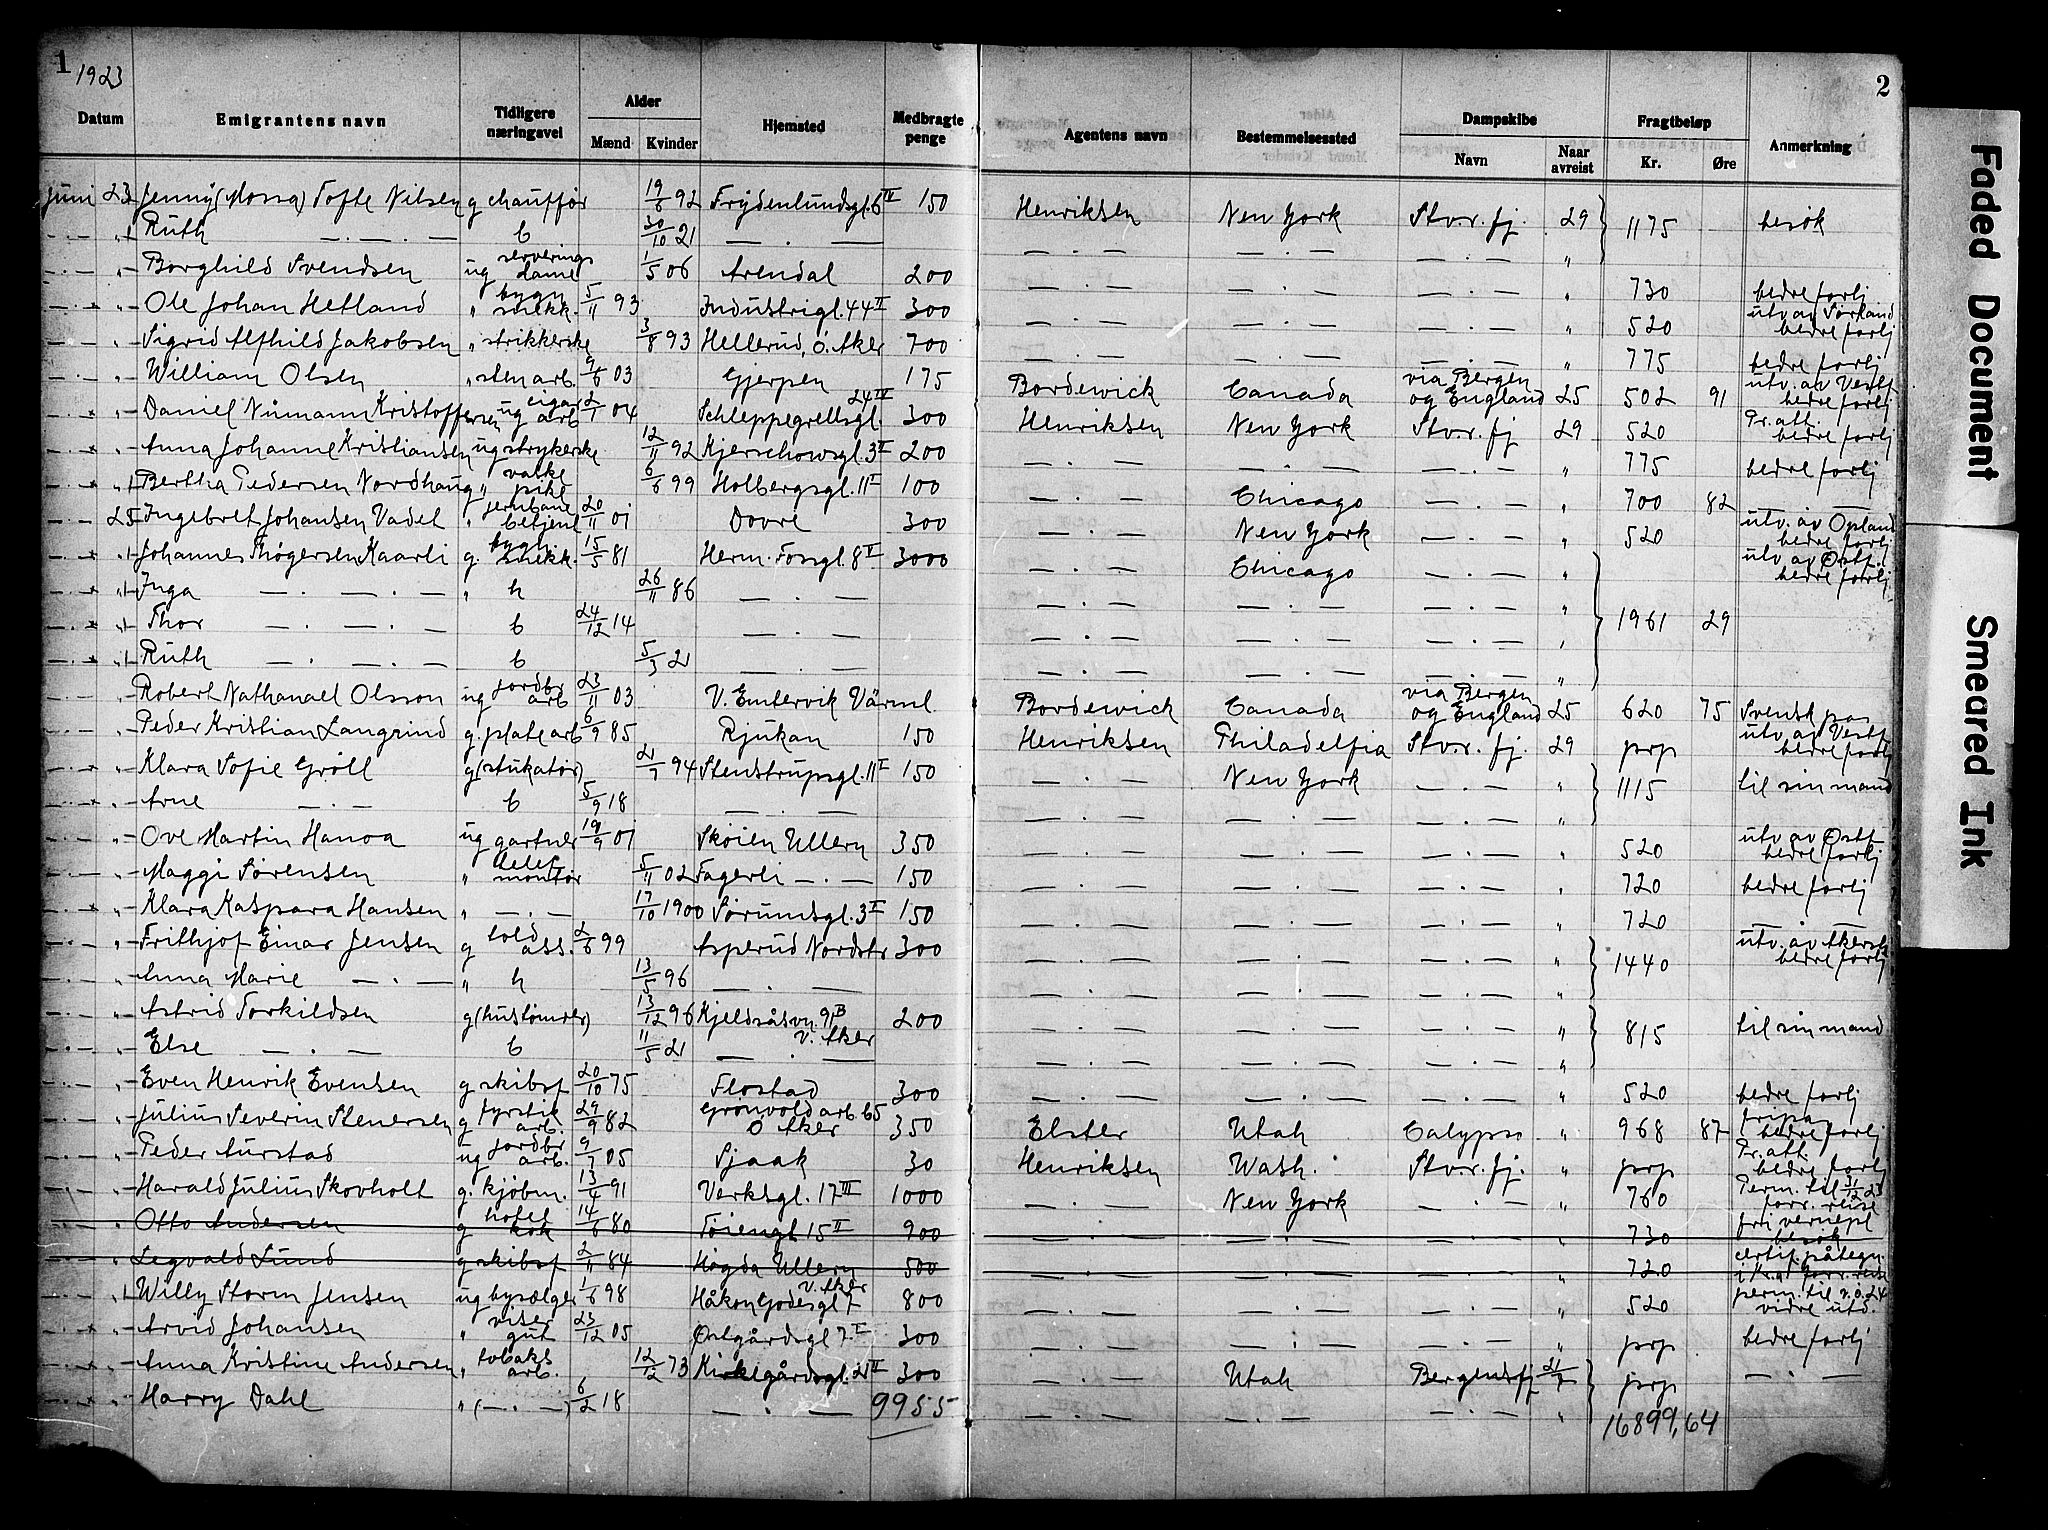 1 1923
2
Datum Emigrantens navn Tidligere næringsvei Alder Mænd Kvinder Hjemsted Medbragte penge Agentens navn Bestemmelsessted Dampskibe Navn Naar avreist Fragtbeløp Kr. Øre Anmerkning
Juni 23 Jenny (Mossa) Tofte Nilsen g chauffør 19/6 92 Frydenlundsgt. 6 IV 150 Henriksen New York Stvr. fj. 29 1175 besøk
— " Ruth —.—.— b 30/10 21 —.— —.— —.— —.— "
— " Borghild Svendsen ug serverings dame 1/5 06 Arendal 200 —.— —.— —.— " 730 bedre fortj.
— " Ole Johan Hetland " bygn snikk. 5/11 93 Industrigt. 44 II 300 —.— —.— —.— " 520 utv. av Sørland bedre fortj
— " Sigrid Alfhild Jakobsen " strikkerske 3/8 93 Hellerud, Ø. Aker 700 —.— —.— —.— " 775 bedre fortj
— " William Olsen " sten arb. 9/6 03 Gjerpen 175 Bordewick Canada via Bergen og England 25 502 91 utv. av Vestf bedre fortj
— " Daniel Numann Kristoffersen ug cigar arb 2/1 04 Schleppegrellsgt. 24 IV 300 Henriksen New York Stvr. fj 29 520 Pr. att. bedre fortj
— " Anna Johanne Kristiansen ug strykerske 12/11 92 Kjerschowsgt. 3 I 200 —.— —.— —.— " 775 bedre fortj
— " Bertha Pedersen Nordhaug " vaske pike 6/6 99 Holbergsgt. 11 I 100 —.— Chicago —.— " 700 82 —.—
— 25 Ingebret Johansen Vadet " jernbane betjent 20/11 01 Dovre 300 —.— New York —.— " 520 utv. av Opland bedre fortj
— " Johannes Thøgersen Kaarli g. bygn snikk. 15/5 81 Herm. Fossgt. 8 II 3000 —.— Chicago —.— " utv av Østf. bedre fortj
— " Inga —.—.— " h 26/11 86 —.— —.— —.— —.— "
— " Thor —.—.— b 24/12 14 —.— —.— —.— —.— " 1961 29
— " Ruth —.—.— b 5/3 21 —.— —.— —.— —.— "
— " Robert Nathanael Olsson ug jordbr arb 23/11 03 V. Emtervik Värml. Bordewick Canada via Bergen og England 25 620 75 Svensk pas
— " Peder Kristian Langrind g. plate arb 6/9 85 Rjukan 150 Henriksen Philadelfia Stvr. fj. 29 prp utv av Vestf bedre fortj
— " Klara Sofie Grøll g (stukatør) 21/7 94 Stenstrupsgt. 11 I 150 —.— New York —.— " 1115 til sin mand
— " Arne —.— b 5/9 18 —.— —.— —.— —.— "
— " Ove Martin Hanoa ug gartner 19/9 01 Skøien Ullern 350 —.— —.— —.— " 520 utv av Østf bedre fortj
— " Maggi Sørensen " telef montør 5/11 02 Fagerli —.— 150 —.— —.— —.— " 720 bedre fortj
— " Klara Kaspara Hansen " —.— 17/10 1900 Sørumsgt. 3 II 150 —.— —.— —.— " 720 —.—
— " Frithjof Einar Jensen g told ass. 2/6 99 Asperud Nordstr 300 —.— —.— —.— " 1440 utv. av Akersh bedre fortj
— " Anna Marie —.— " h 13/5 96 —.— —.— —.— —.— "
— " Astrid Torkildsen g (hustømrer) 13/12 96 Kjelsåsvn. 91 B V. Aker 200 —.— —.— —.— " 815 til sin mand
— " Else —.— b 11/5 21 —.— —.— —.— —.— "
— " Even Henrik Evensen g skibsf 20/10 75 Flostad 300 —.— —.— —.— " 520 bedre fortj
— " Julius Severin Stenersen g fyrstik arb. 29/9 82 Grønvold arb. 65 Ø Aker 350 Elster Utah Calypso " 968 87 fripas bedre fortj
— " Peder Aurstad ug jordbr arb. 9/7 05 Sjaak 30 Henriksen Wash. Stvr. fj. " prp Pr. att. bedre fortj
— " Harald Julius Skovholt g. kjøbm. 13/4 91 Verksgt. 17 III 1000 —.— New York —.— " 760 Perm. til 31/12 23 forr. reise
— " Otto Andersen g hotel kok 14/6 80 Tøiengt 15 II 900 —.— —.— —.— " 730 fri vernepl besøk
— " Legvald Lund g skibsf 2/11 84 Høgda Ullern 500 —.— —.— —.— " 720 certif. påtegn.
— " Willy Storm Jensen ug bysælger 1/6 98 Håkon Godesgt 7 V. Aker 800 —.— —.— —.— " 520 perm. til v.o. 24 vidre utd.
— " Arvid Johansen " viser gut 23/12 05 Østgårdsgt 7 I 300 —.— —.— —.— " prp bedre fortj
— " Anna Kristine Andersen " tobaks arb. 12/12 73 Kirkegårdsgt. 21 II 300 —.— Utah Bergensfj 21/7 prp —.—
— " Harry Dahl " (—.—) 6/2 18 —.— 9955 —.— —.— —.— " 16899,64
Faded Document
Smeared Ink